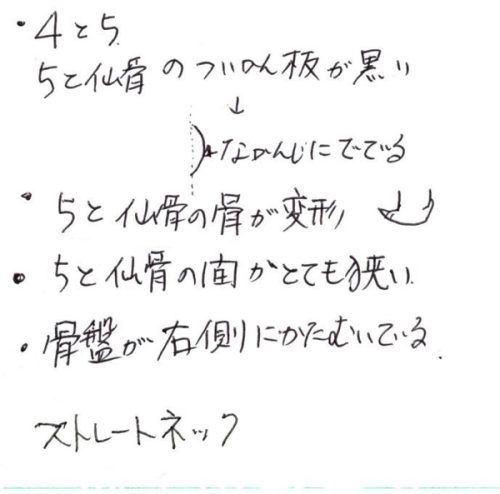 ・4と5
5と仙骨のついかん板が黒い
↓
なかんじにでている
・5と仙骨の骨が変形
・5と仙骨の間がとても狭い
・骨盤が右側にかたむいている.
ストレートネック